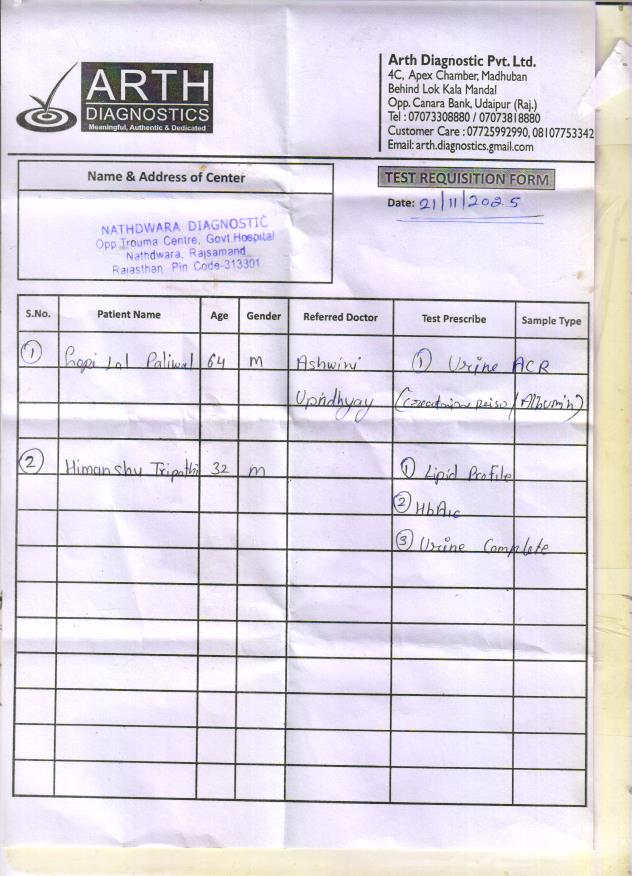 ARTH
DIAGNOSTICS
Meaningful, Authentic & Dedicated
Arth Diagnostic Pvt. Ltd.
4C, Apex Chamber, Madhuban
Behind Lok Kala Mandal
Opp. Canara Bank, Udaipur (Raj.)
Tel : 07073308880 / 07073818880
Customer Care : 07725992990, 08107753342
Email: arth.diagnostics.gmail.com
Name & Address of Center
TEST REQUISITION FORM
Date: 21/11/2025
NATHDWARA DIAGNOSTIC
Opp Trouma Centre, Govt Hospital
Nathdwara, Rajsamand
Rajasthan Pin Code-313301
S.No. Patient Name Age Gender Referred Doctor Test Prescribe Sample Type
1 Gopi Lal Paliwal 64 M Ashwini 1 Urine ACR
Upadhyay ( / Albumin)
2 Himanshu Tripathi 32 M 1 Lipid Profile
2 HbA1c
3 Urine Complete